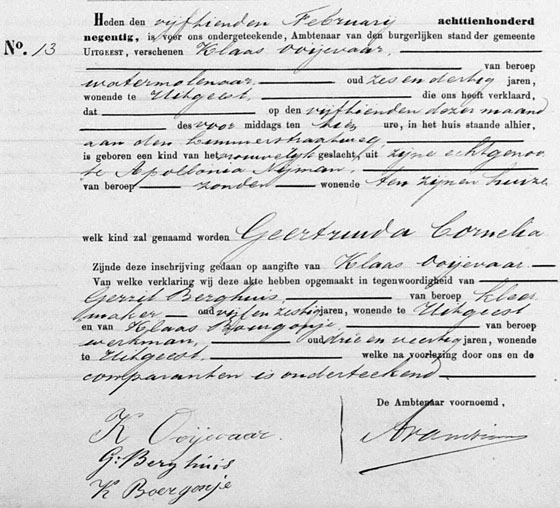 Heden den vijftienden Februarij achttienhonderd
negentig, is voor ons ondergeteekende, Ambtenaar van den burgerlijken stand der gemeente
N°. 13 Uitgeest, verschenen Klaas Ooijevaar
van beroep
watermolenaar oud zes en dertig jaren,
wonende te Uitgeest die ons heeft verklaard,
dat op den vijftienden dezer maand
des voor middags ten ure, in het huis staande alhier,
aan den straatweg
is geboren een kind van het vrouwelijk geslacht, uit zijne echtgenoo-
te Apollonia Nijman,
van beroep zonder wonende ten zijnen huize
welk kind zal genaamd worden Geertruida Cornelia
Zijnde deze inschrijving gedaan op aangifte van Klaas Ooijevaar
Van welke verklaring wij deze akte hebben opgemaakt in tegenwoordigheid van
Gerrit Berghuis, van beroep kleer-
maker oud vijf en zestig jaren, wonende te Uitgeest
en van Klaas Boergonje, van beroep
werkman, oud drie en veertig jaren, wonende
te Uitgeest welke na voorlezing door ons en de
comparanten is onderteekend
De Ambtenaar voornoemd,
K Ooijevaar.
G: Berghuis
K Boergonje